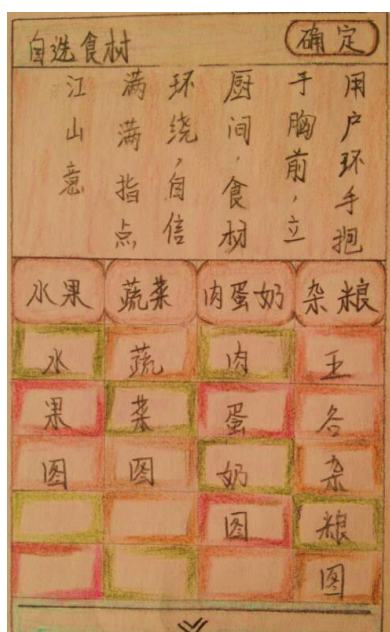 自选食材
确定
用户环手抱
于胸前，立
厨间，食材
环绕，自信
满满指点
江山意
水果 蔬菜 肉蛋奶 杂粮
水 蔬 肉 五
果 菜 蛋 谷
图 图 奶 杂
图 粮
图